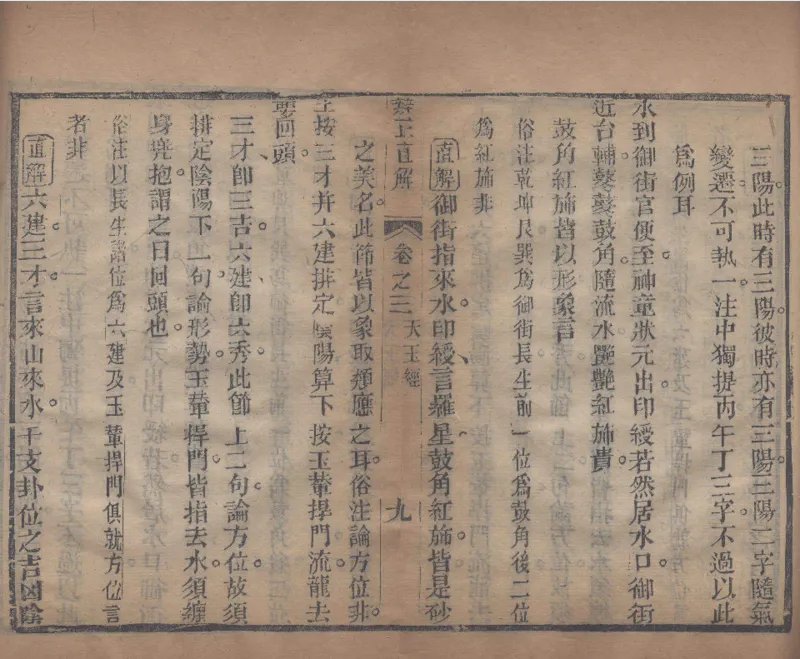 三陽此時有三陽彼時亦有三陽三陽二字隨氣
變遷不可執一注中獨提丙午丁三字不過以此
爲例耳
水到御街官便至神童狀元出印綬若然居水口御街
近台輔鼕鼕鼓角隨流水艷艷紅旆貴
鼓角紅旆皆以形象言
俗注乾坤艮巽爲御街長生前一位爲鼓角後二位
爲紅旆非
辯正直解 卷之三 天玉經 九
直解御街指來水印綬言羅星鼓角紅旆皆是砂
之美名此節皆以象取類應之耳俗注論方位非
上按三才并六建排定陰陽算下按玉輦捍門流龍去
要回頭
三才即三吉六建即六秀此節上二句論方位故須
排定陰陽下一句論形勢玉輦捍門皆指去水須纏
身兜抱謂之曰回頭也
俗注以長生諸位爲六建及玉輦捍門俱就方位言
者非
直解六建三才言來山來水干支卦位之吉凶陰